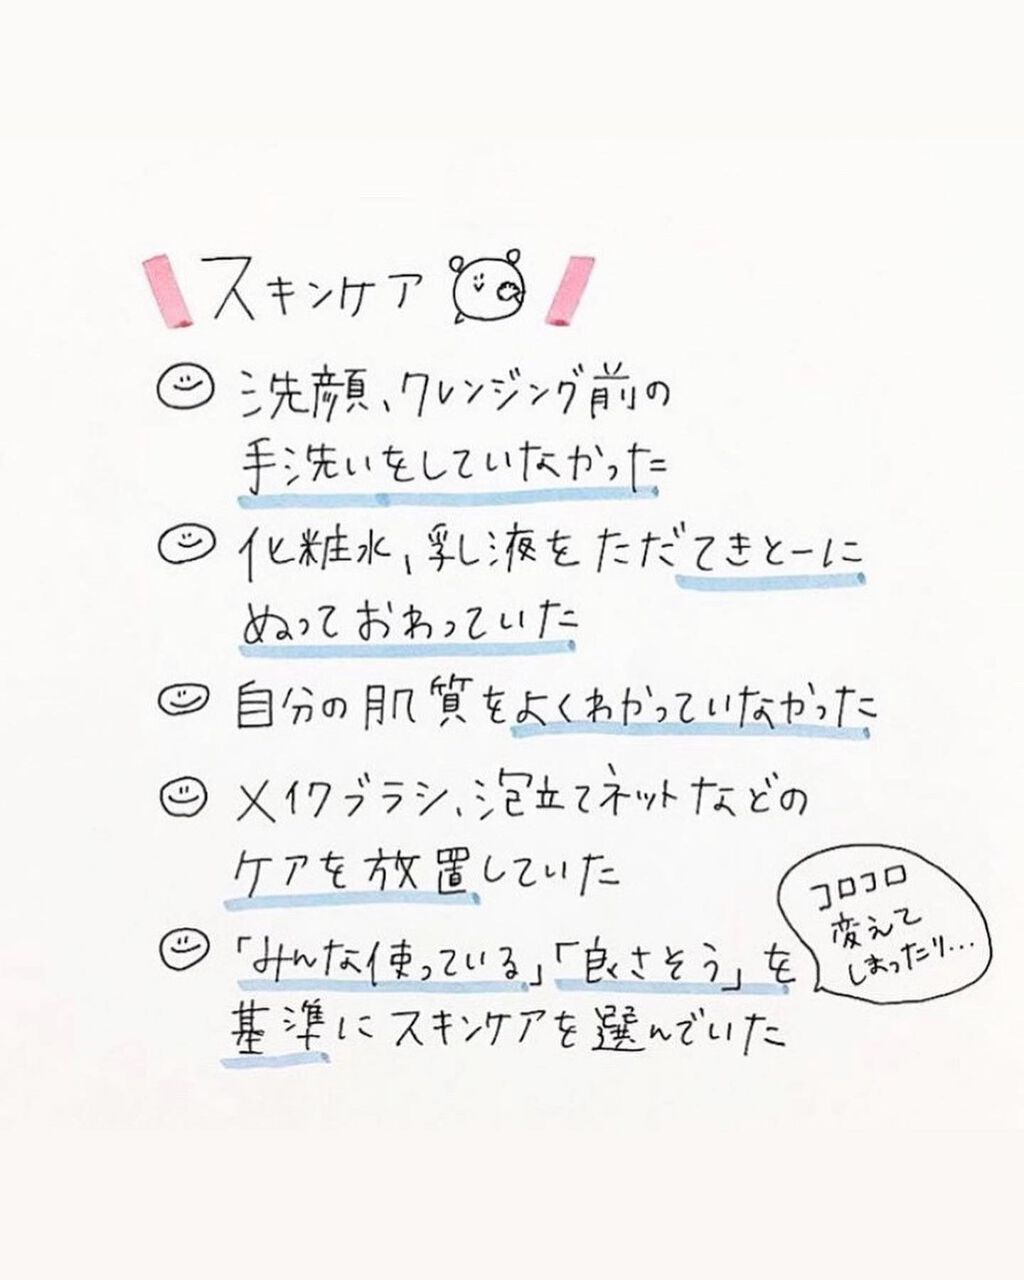 スキンケア
洗顔、クレンジング前の
手洗いをしていなかった
化粧水、乳液をただてきとーに
ぬっておわっていた
自分の肌質をよくわかっていなかった
メイクブラシ、泡立てネットなどの
ケアを放置していた
「みんな使っている」「良さそう」を
基準にスキンケアを選んでいた
コロコロ
変えて
しまったり...